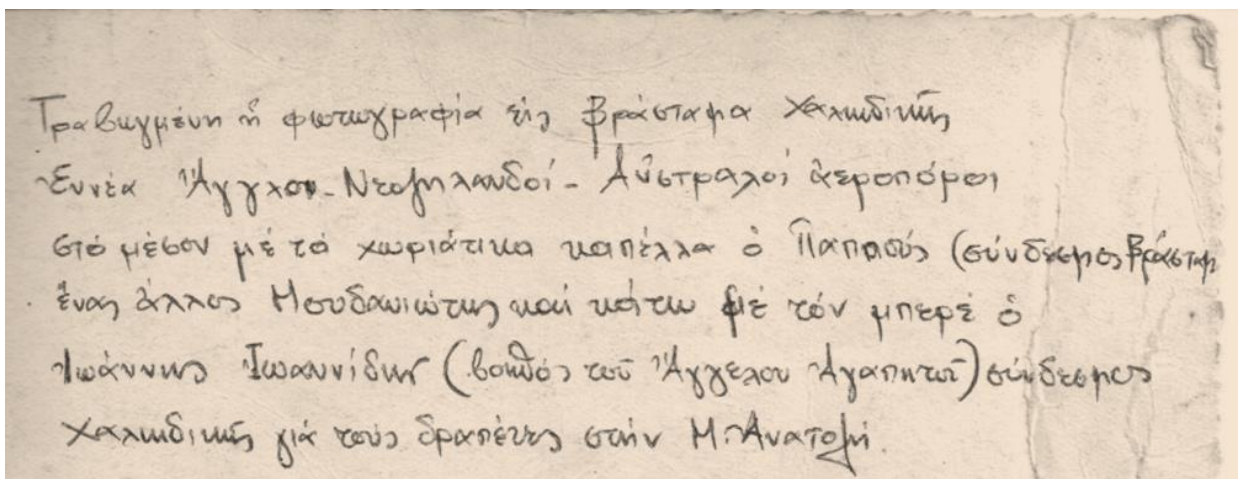 Τραβηγμένη ἡ φωτωγραφία εἰς Βράσταμα Χαλκιδικῆς
Εννέα Ἄγγλοι - Νεοζηλανδοί - Αὐστραλοί ἀεροπόροι
στό μέσον μέ τό χωριάτικο καπέλλα ὁ Παππούς (σύνδεσμος Βράσταμ
ἕνας ἄλλος Μουδανιώτης καί κάτω μέ τόν μπερέ ὁ
Ἰωάννης Ἰωαννίδης (βοηθός τοῦ Ἄγγελου Ἀγαπητοῦ) σύνδεσμος
Χαλκιδικῆς γιά τούς δραπέτες στήν Μ. Ἀνατολή.